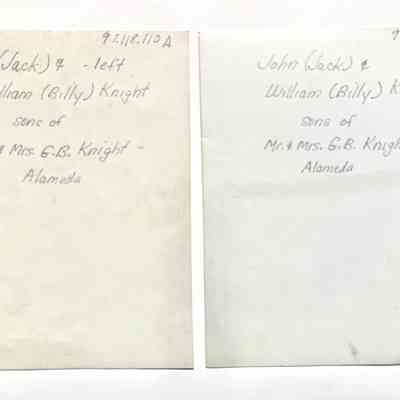 97.118.110A
(Jack) & - left
William (Billy) Knight
sons of
& Mrs. G.B. Knight -
Alameda
9
John (Jack) &
William (Billy) K
sons of
Mr. & Mrs. G.B. Knigh
Alameda